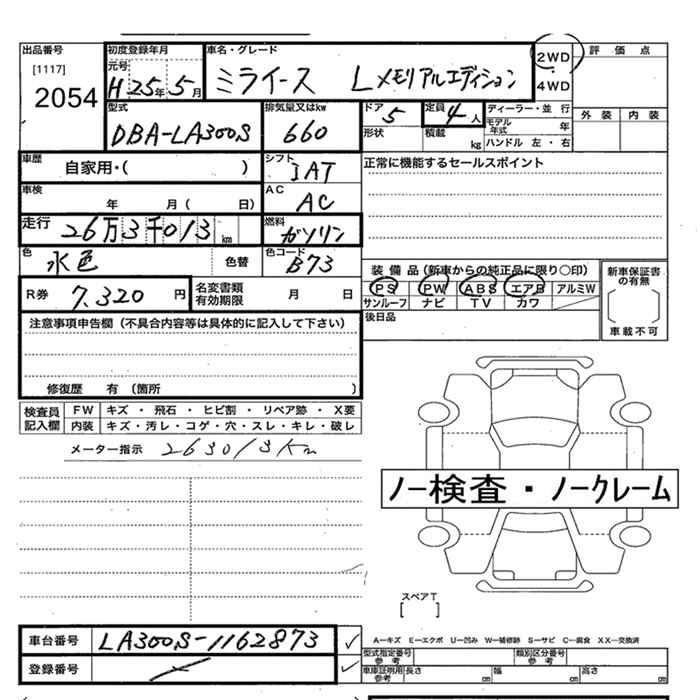 出品番号 初度登録年月 車名・グレード 2WD 評価点
[1117] 元号 H 25年 5月 ミライース Lメモリアルエディション 4WD
2054 型式 排気量又はkw ドア 定員 ディーラー・並行 外装 内装
DBA-LA300S 660 5 4人 モデル年式 年
形状 積載 kg ハンドル 左・右
車歴 自家用・( ) シフト IAT 正常に機能するセールスポイント
車検 年 月( 日) AC AC
走行 26万3千013 km 燃料 ガソリン
色 水色 色替 色コード B73
装備品(新車からの純正品に限り〇印) 新車保証書の有無
R券 7,320円 名変書類有効期限 月 日 PS PW ABS エアB アルミW
サンルーフ ナビ TV カワ
注意事項申告欄(不具合内容等は具体的に記入して下さい) 後日品 車載不可
修復歴 有 (箇所 )
検査員記入欄 FW キズ・飛石・ヒビ割・リペア跡・X要
内装 キズ・汚レ・コゲ・穴・スレ・キレ・破レ
メーター指示 263013Km
ノー検査・ノークレーム
スペアT
[ ]
車台番号 LA300S-1162873
A―キズ E―エクボ U―凹み W―補修跡 S―サビ C―腐食 XX―交換済
登録番号
型式指定番号 参考 類別区分番号 参考
車庫証明用 参考 長さ cm 幅 cm 高さ cm